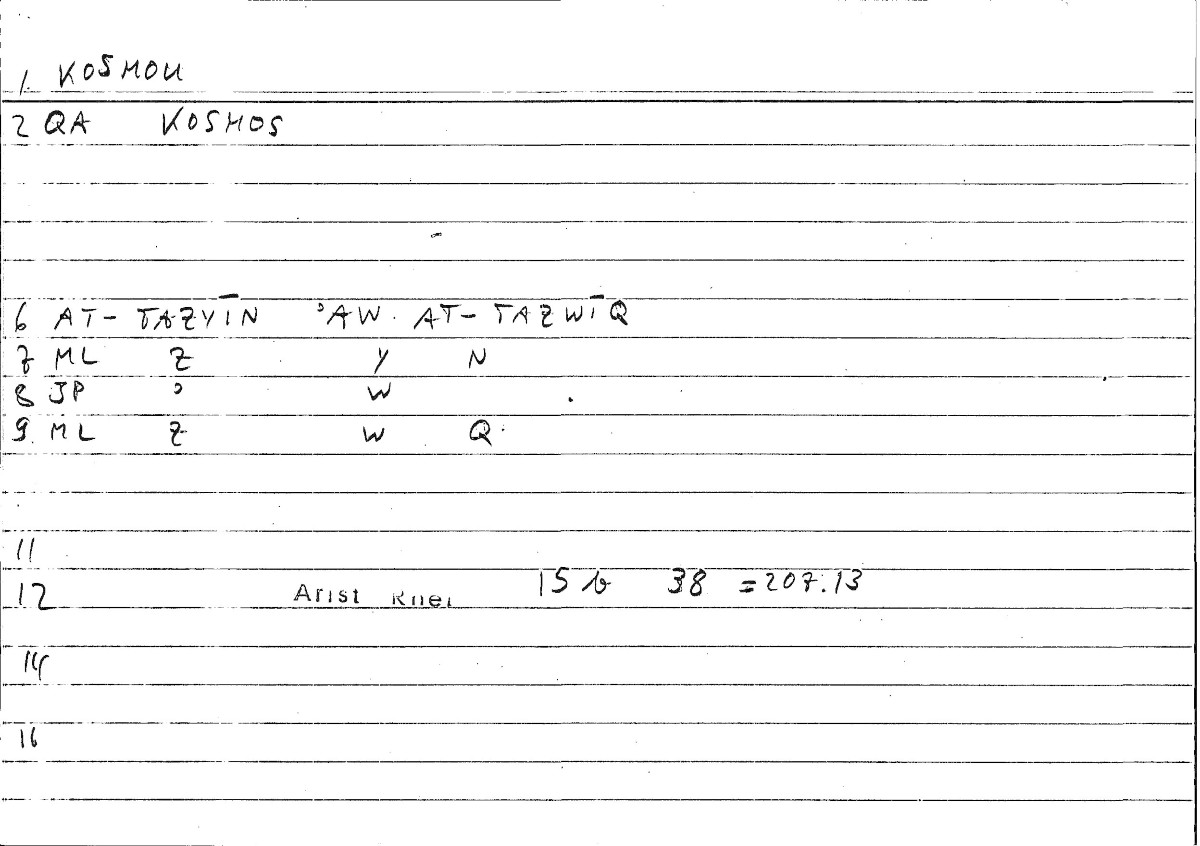 1. KOSMOU
2 QA KOSMOS
6 AT- TAZYĪN ʾAW AT- TAZWĪQ
7 ML Z Y N
8 JP ʾ W
9. ML Z W Q
11
12 Arist Rhet 15 b 38 = 207.13
14
16